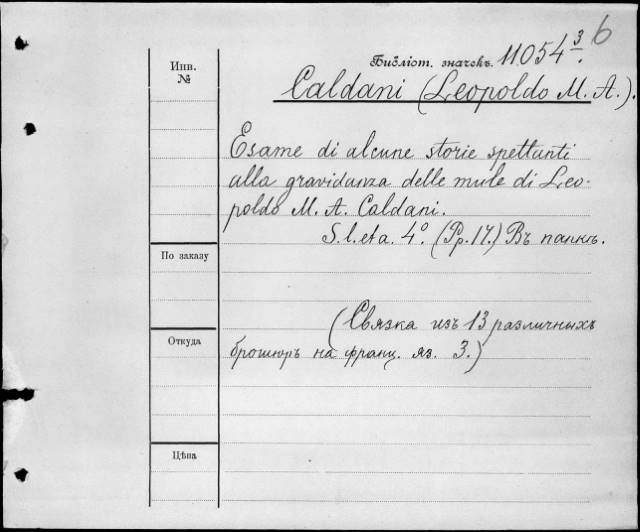 6
Инв.
№
Библіот. значекъ. 11054 3.
Caldani (Leopoldo M. A.).
Esame di alcune storie spettanti
alla gravidanza delle mule di Leo-
poldo M. A. Caldani.
S. l. et a. 4º. (Pp. 17.) Въ папкѣ.
По заказу
(Связка изъ 13 различныхъ
Откуда
брошюръ на франц. яз. 3.)
Цѣна